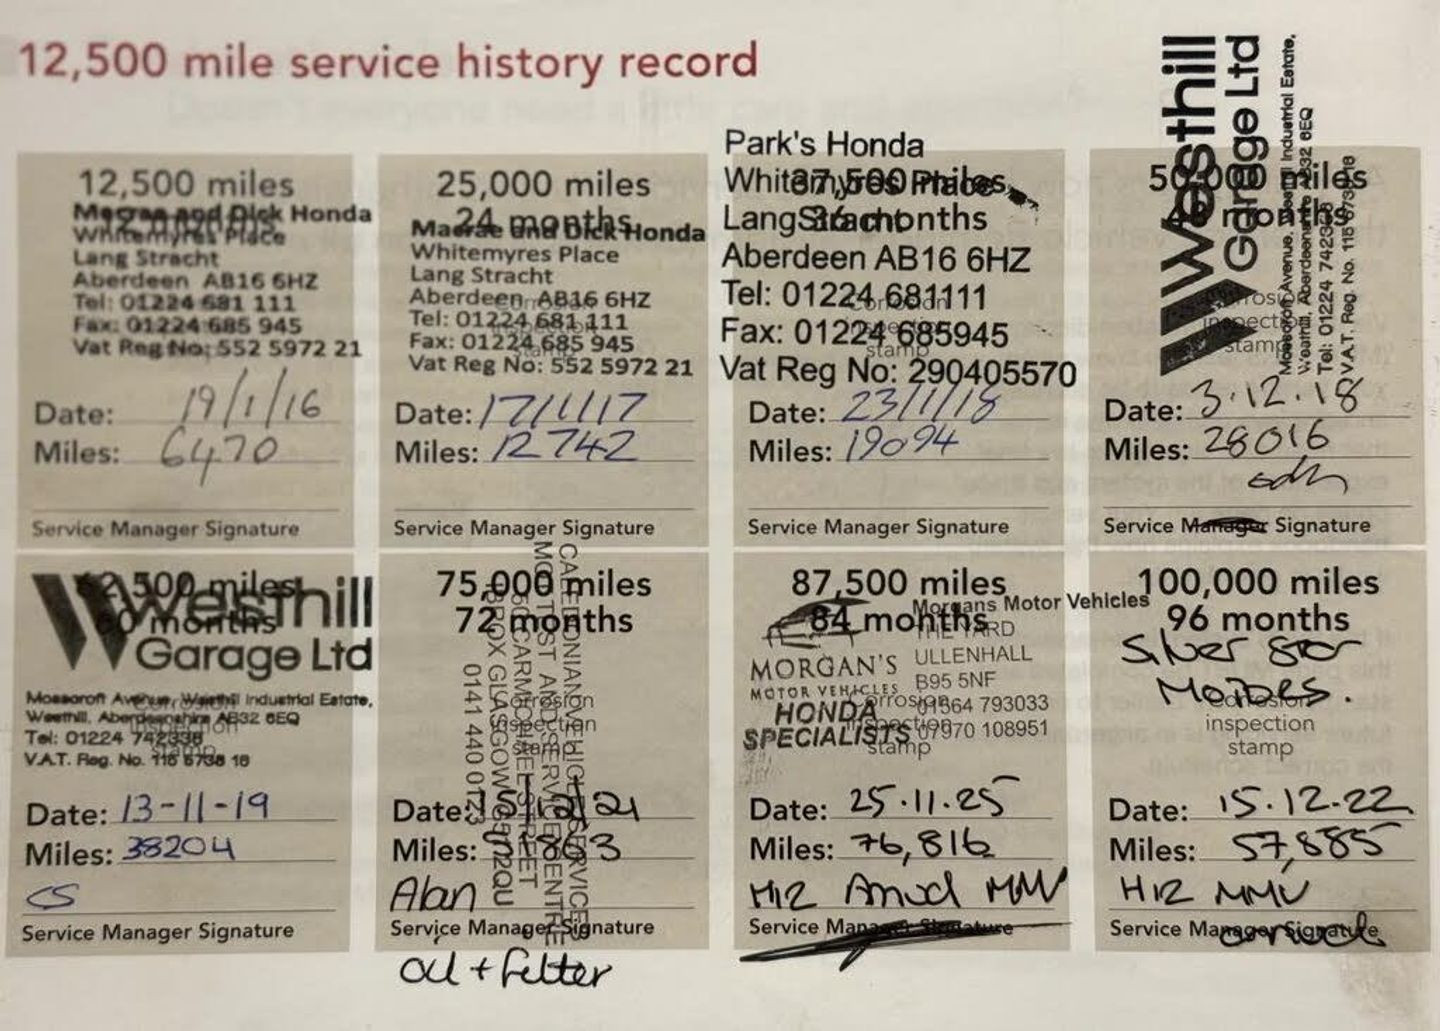 12,500 mile service history record
12,500 miles
12 months
Macrae and Dick Honda
Whitemyres Place
Lang Stracht
Aberdeen AB16 6HZ
Tel: 01224 681 111
Fax: 01224 685 945
Vat Reg No: 552 5972 21
Date: 19/1/16
Miles: 6470
Service Manager Signature
25,000 miles
24 months
Macrae and Dick Honda
Whitemyres Place
Lang Stracht
Aberdeen AB16 6HZ
Tel: 01224 681 111
Fax: 01224 685 945
Vat Reg No: 552 5972 21
Corrosion
inspection
stamp
Date: 17/1/17
Miles: 12742
Service Manager Signature
37,500 miles
36 months
Park's Honda
Whitemyres Place
Lang Stracht
Aberdeen AB16 6HZ
Tel: 01224 681111
Fax: 01224 685945
Vat Reg No: 290405570
Corrosion
inspection
stamp
Date: 23/1/18
Miles: 19094
Service Manager Signature
50,000 miles
48 months
Westhill
Garage Ltd
Mosscroft Avenue, Westhill Industrial Estate,
Westhill, Aberdeenshire AB32 6EQ
Tel: 01224 742338
V.A.T. Reg. No. 115 6738 18
Corrosion
inspection
stamp
Date: 3.12.18
Miles: 28016
Service Manager Signature
62,500 miles
60 months
Westhill
Garage Ltd
Mosscroft Avenue, Westhill Industrial Estate,
Westhill, Aberdeenshire AB32 6EQ
Tel: 01224 742338
V.A.T. Reg. No. 115 6738 18
Corrosion
inspection
stamp
Date: 13-11-19
Miles: 38204
CS
Service Manager Signature
75,000 miles
72 months
CALEDONIAN VEHICLE SERVICES
MOT TEST AND SERVICE CENTRE
CARMICHAEL STREET
IBROX GLASGOW G51 2QU
0141 440 0123
Corrosion
inspection
stamp
Date: 15/12/21
Miles: 51863
Alan
Service Manager Signature
Oil + filter
87,500 miles
84 months
MORGAN'S
MOTOR VEHICLES
HONDA
SPECIALISTS
Morgans Motor Vehicles
THE YARD
ULLENHALL
B95 5NF
01564 793033
07970 108951
Corrosion
inspection
stamp
Date: 25.11.25
Miles: 76,816
MMV
Service Manager Signature
100,000 miles
96 months
Silver Star
Motors.
Corrosion
inspection
stamp
Date: 15.12.22
Miles: 57,885
MMV
Service Manager Signature